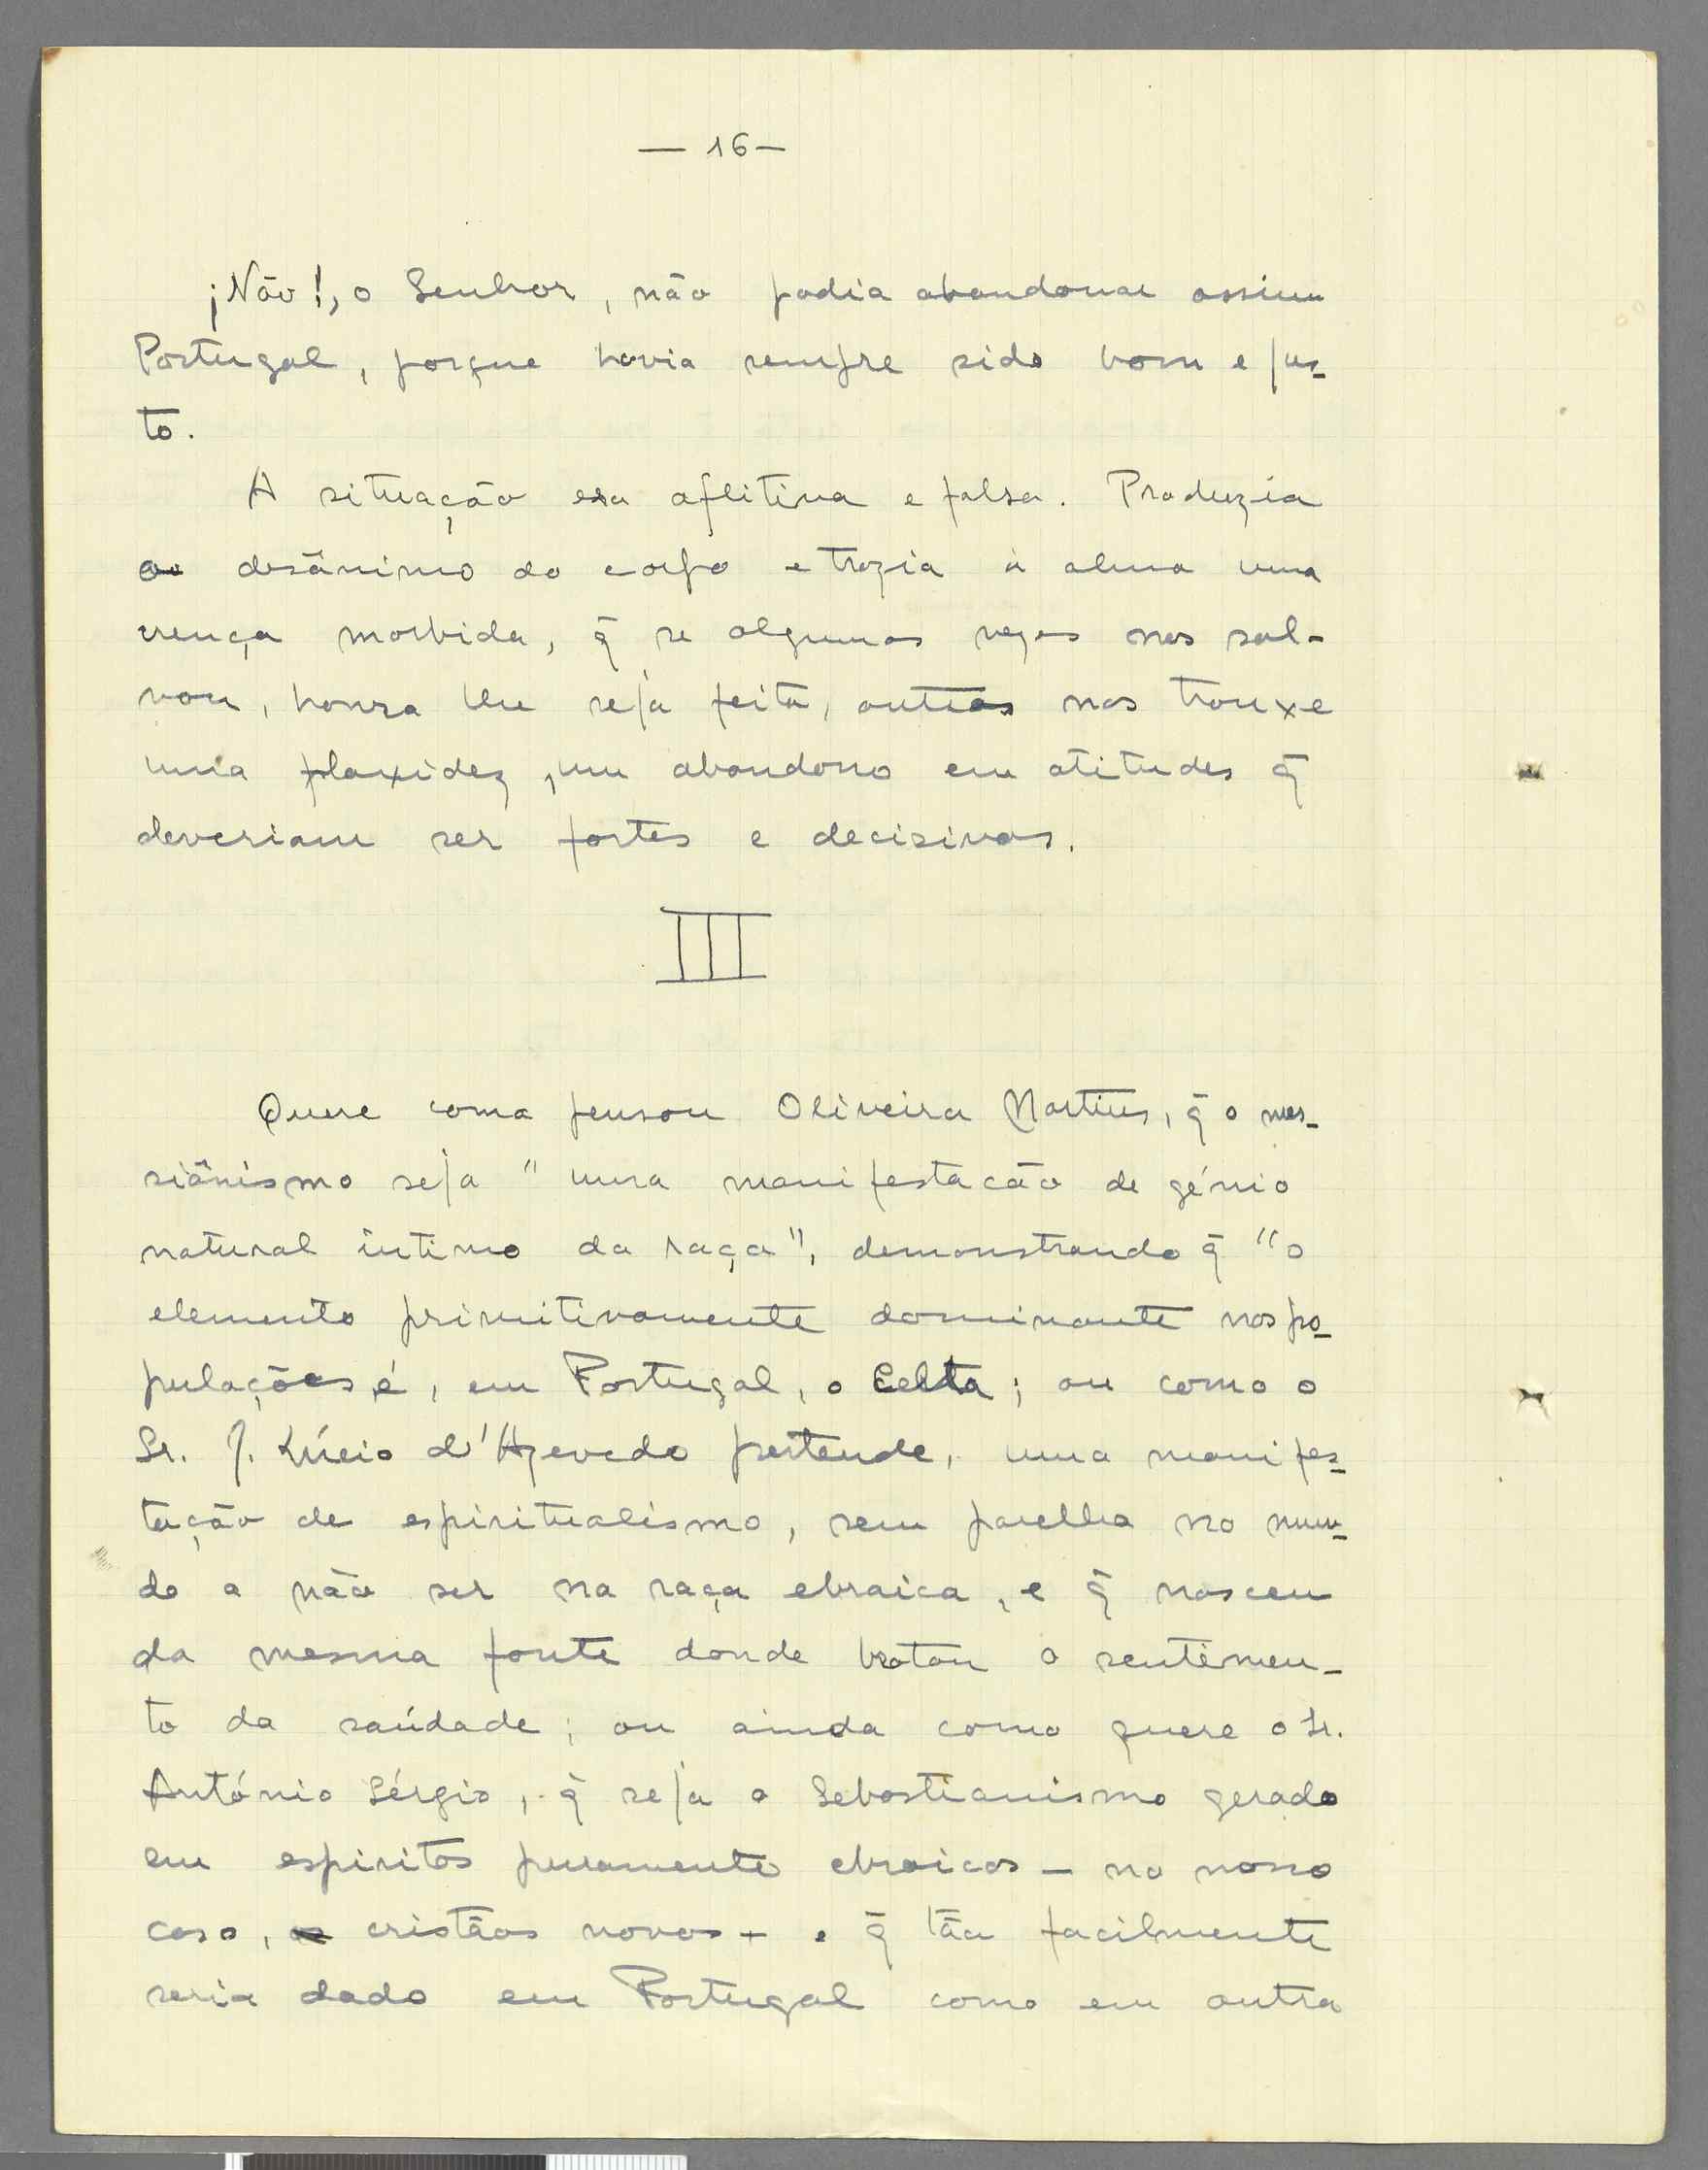 — 16 —
¡Não!, o Senhor, não podia abandonar assim
Portugal, porque havia sempre sido bom e jus-
to.
A situação era aflitiva e falsa. Produzia
o desânimo do corpo e trazia à alma uma
crença morbida, q̃ se algumas vezes nos sal-
vou, honra lhe seja feita, outras nos trouxe
uma plaxidez, um abandono em atitudes q̃
deveriam ser fortes e decisivas.
III
Quere como pensou Oliveira Martins, q̃ o mes-
siânismo seja "uma manifestacão de génio
natural íntimo da raça", demonstrando q̃ "o
elemento primitivamente dominante nas po-
pulações é, em Portugal, o Celta; ou como o
Sr. J. Lúcio d'Azevedo pertende, uma manifes-
tação de espiritualismo, sem parelha no mun-
do a não ser na raça ebraica, e q̃ nasceu
da mesma fonte donde brotou o sentimen-
to da saúdade; ou ainda como quere o Sr.
António Sérgio, q̃ seja o Sebastianismo gerado
em espiritos puramente ebraicos — no nosso
caso, cristãos novos — e q̃ tão facilmente
seria dado em Portugal como em outra